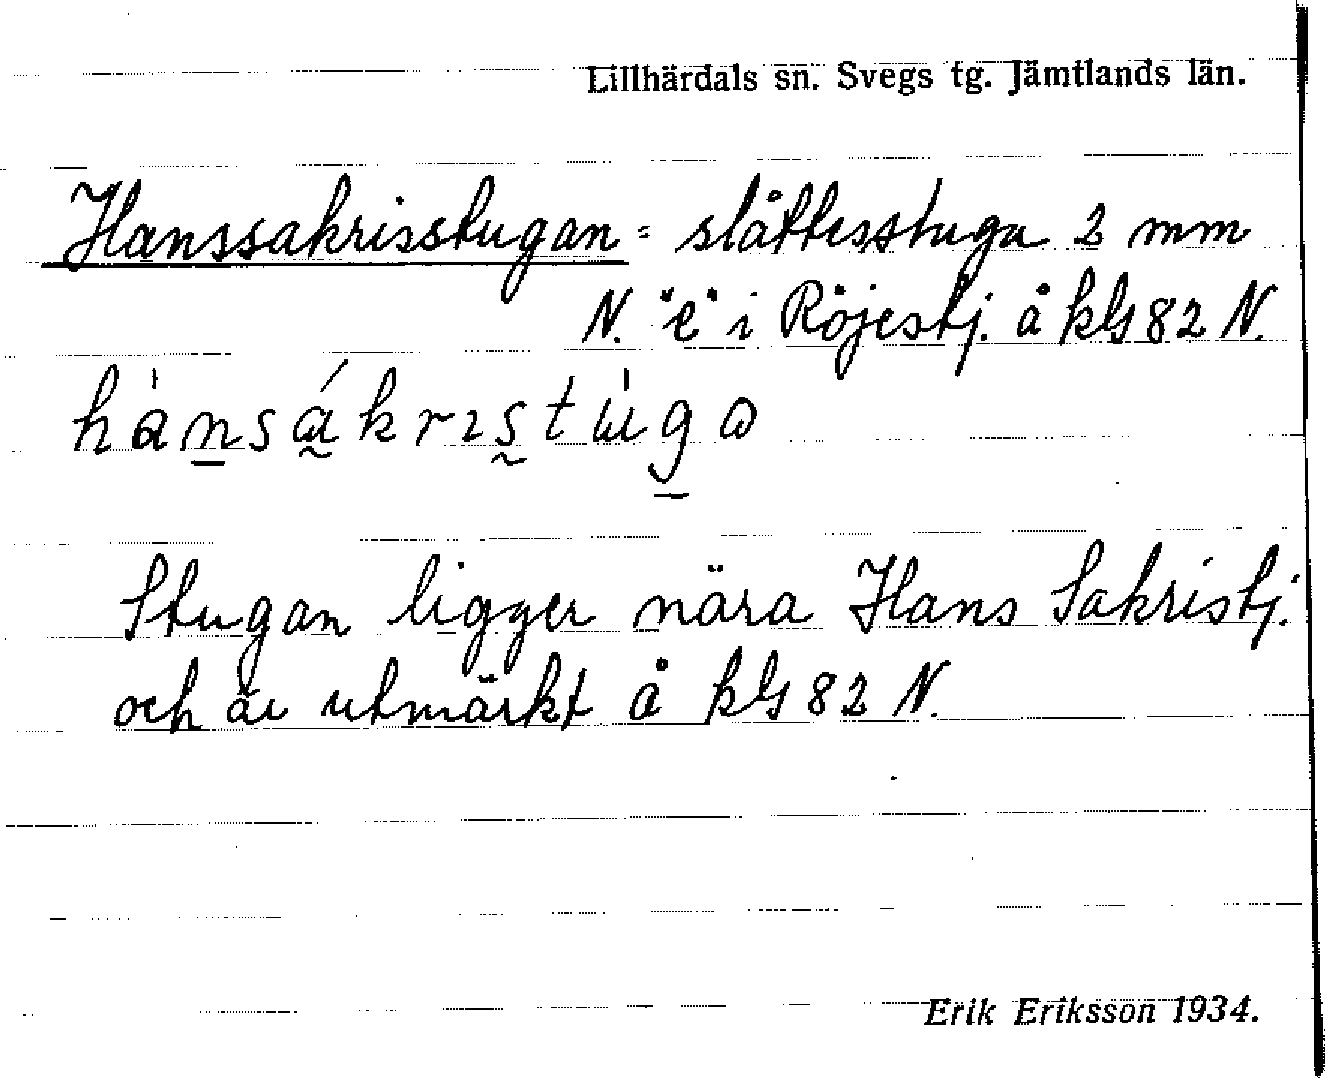 Lillhärdals sn. Svegs tg. Jämtlands län.
Hanssakrisstugan = slåttesstuga 2 mm
N. "e" i Röjestj. å kbl 82 N.
hànsákrɪstùgɷ
Stugan ligger nära Hans Sakristj.
och är utmärkt å kbl 82 N.
Erik Eriksson 1934.